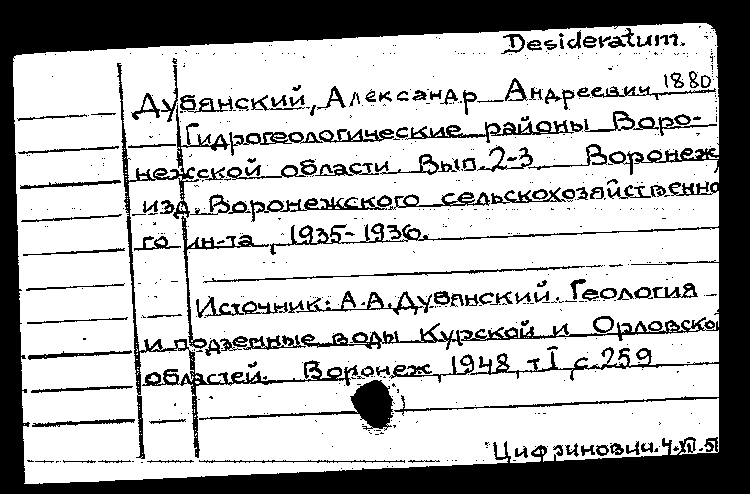 Desideratum.
Дубянский, Александр Андреевич, 1880
Гидрогеологические районы Воро-
нежской области. Вып. 2-3 Воронеж,
изд. Воронежского сельскохозяйственно
го ин-та, 1935-1936.
Источник: А.А. Дубянский. Геология
и подземные воды Курской и Орловской
областей. Воронеж, 1948, т I, с. 259
Цифринович. 4.XII.51